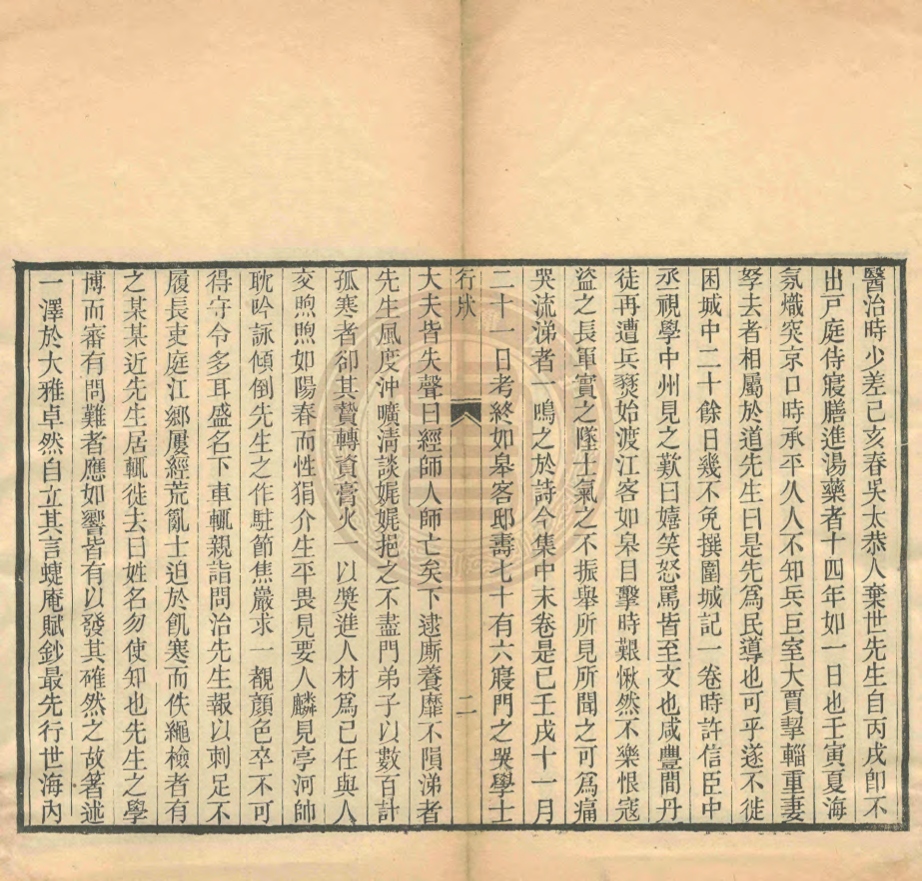 醫治時少差己亥春吳太恭人棄世先生自丙戌卽不
出戸庭侍寢膳進湯藥者十四年如一日也壬寅夏海
氛熾突京口時承平久人不知兵巨室大賈挈輜重妻
孥去者相屬於道先生曰是先爲民導也可乎遂不徙
困城中二十餘日幾不免撰圍城記一卷時許信臣中
丞視學中州見之歎曰嬉笑怒罵皆至文也咸豐間丹
徒再遭兵燹始渡江客如皋目擊時艱愀然不樂恨寇
盜之長軍實之墜士氣之不振舉所見所聞之可爲痛
哭流涕者一鳴之於詩今集中末卷是已壬戌十一月
二十一日考終如皋客邸壽七十有六寢門之哭學士
行狀 二
大夫皆失聲曰經師人師亡矣下逮廝養靡不隕涕者
先生風度沖曠淸談娓娓挹之不盡門弟子以數百計
孤寒者卻其贄轉資膏火一以奬進人材爲已任與人
交煦煦如陽春而性狷介生平畏見要人麟見亭河帥
耽吟詠傾倒先生之作駐節焦巖求一覩顏色卒不可
得守令多耳盛名下車輒親詣問治先生報以刺足不
履長吏庭江鄉屢經荒亂士迫於飢寒而佚繩檢者有
之某某近先生居輒徙去曰姓名勿使知也先生之學
博而審有問難者應如響皆有以發其確然之故著述
一澤於大雅卓然自立其言蜨庵賦鈔最先行世海內